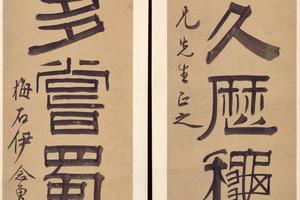 久歷穐
先生正之
多嘗蜀
梅石伊念曾